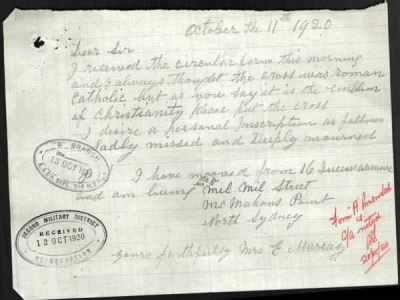 October the 11th 1920
Dear Sir
I recived the circular form this morning
and I always thought the cross was roman
Catholic but as you say it is the emblem
of Christianity please put the cross
I desire a personal Inscription as follows
Sadly missed and Deeply mourned
I have mooved from 16
and am living Mil Mil Street
McMahons Point
North Sydney
yours faithfully Mrs E
B BRANCH
13 OCT 1920
SECOND MILITARY DISTRICT
RECEIVED
12 OCT 1920
Form A Amended